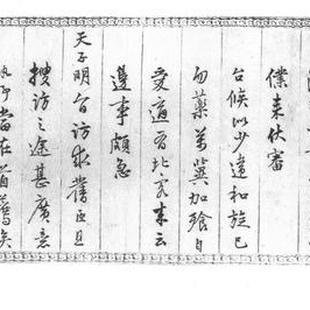 僕来伏審
台候以少違和旋已
勿藥萬冀加飱自
愛適有北客来云
邊事頗急
天子明旨訪求舊臣且
搜訪之途甚廣意
當在首薦矣